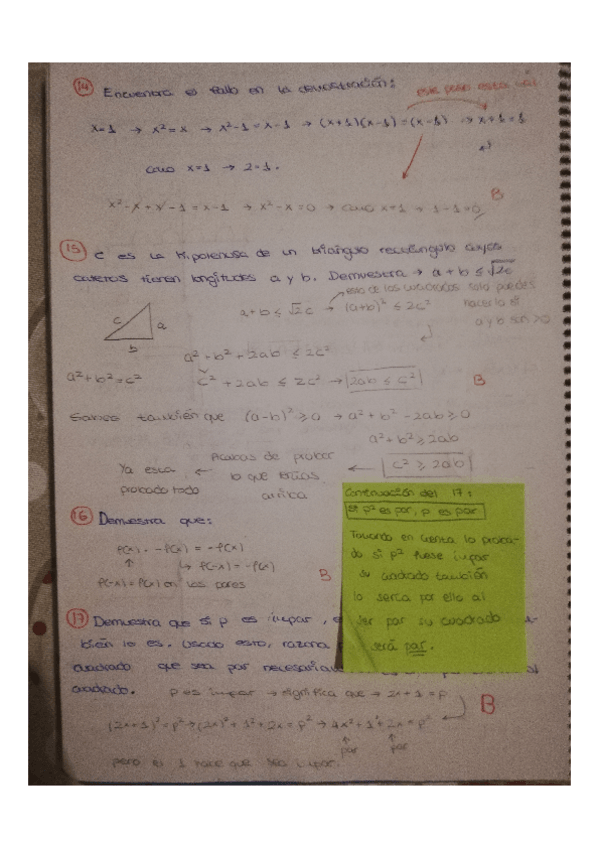 14 Encuentra el fallo en la demostración: este paso está
x=1 → x²=x → x²-1=x-1 → (x+1)(x-1)=(x-1) → x+1=1
como x=1 → 2=1.
x²-x+x-1=x-1 → x²-x=0 → como x=1 → 1-1=0 B
15 c es la hipotenusa de un triángulo rectángulo cuyos
catetos tienen longitudes a y b. Demuestra → a+b≤√2c
esto de los cuadrados solo puedes
a+b≤√2c → (a+b)²≤2c² hacerlo si
a y b son >0
c a b
a²+b²+2ab≤2c²
a²+b²=c² c²+2ab≤2c² → 2ab≤c² B
Sabemos también que (a-b)²≥0 → a²+b²-2ab≥0
a²+b²≥2ab
Ya está ← Acabas de probar ← c²≥2ab
probado todo lo que tenías
arriba
16 Demuestra que:
f(x)·-f(x)=-f(x)
↑ ↳ f(-x)=-f(x)
f(-x)=f(x) en los pares B
17 Demuestra que si p es impar,
bién lo es. Usado esto, razona
cuadrado que sea par necesaria
cuadrado. p es impar → significa que → 2x+1=p
(2x+1)²=p² → (2x)²+1²+2x=p² → 4x²+1²+2x=p² B
↑ par ↑ par
pero el 1 hace que sea impar.
Continuación del 17:
si p² es par, p es par
Tomando en cuenta lo proba-
do si p² fuese impar
su cuadrado también
lo sería por ello al
ser par su cuadrado
será par.